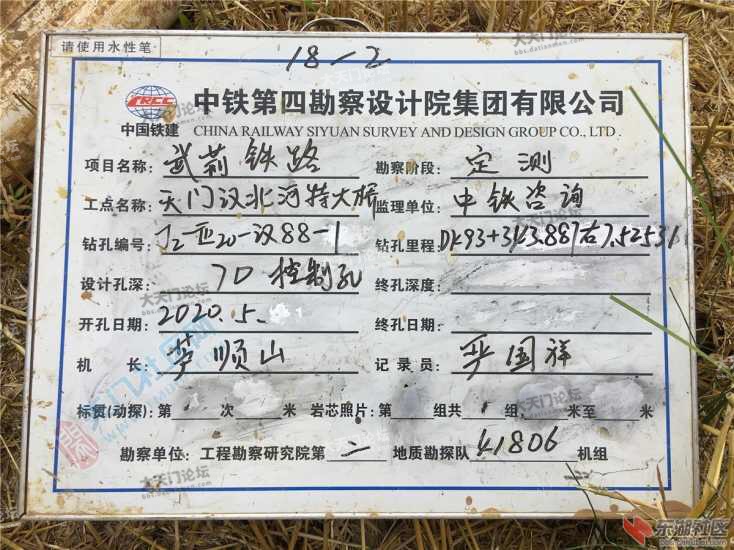 请使用水性笔
18-2
CRCC
中国铁建
中铁第四勘察设计院集团有限公司
CHINA RAILWAY SIYUAN SURVEY AND DESIGN GROUP CO., LTD.
项目名称: 武荆铁路 勘察阶段: 定测
工点名称: 天门汉北河特大桥 监理单位: 中铁咨询
钻孔编号: J2-亚20-汉88-1 钻孔里程: DK93+343.887右7.52531
设计孔深: 70 控制孔 终孔深度:
开孔日期: 2020.5. 终孔日期:
机 长: 顺山 记录员: 严国祥
标贯(动探): 第 次 米 岩芯照片: 第 组共 组, 米至 米
勘察单位: 工程勘察研究院第二地质勘探队 41806 机组
大天门论坛
bbs.datianmen.com
天门社区网
东湖社区